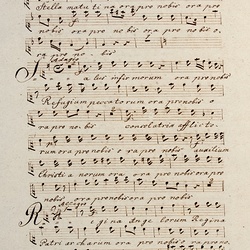 Stella matutina ora pro nobis ora pro
nobis ora pro nobis ora pro nobis o,
ra pro no bis
Adagio
Salus infirmorum ora pro nobis
Refugium peccatorum ora pro nobis o
ra pro nobis consolatrix afflicto
rum ora pro nobis o ra pro nobis auxilium
Christi a norum ora pro nobis ora pro
nobis ora pro nobis ora pro nobis
Regina Angelorum Regina
Patri archarum ora pro nobis o ra pro